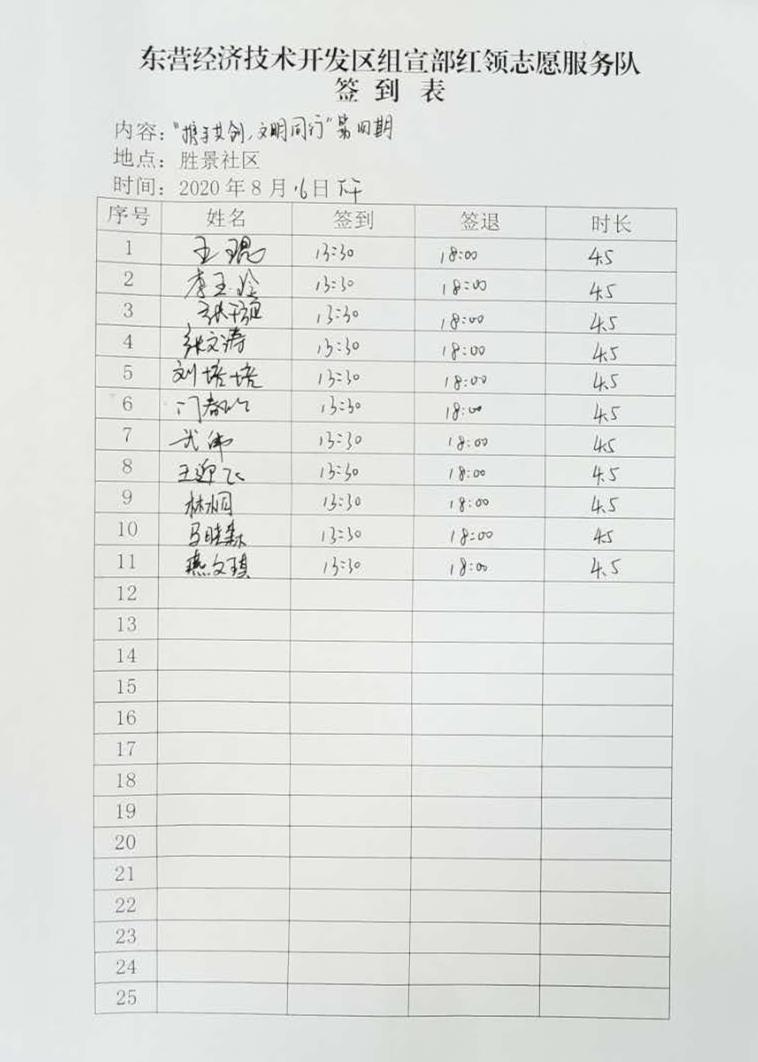 东营经济技术开发区组宣部红领志愿服务队
签到表
内容："携手共创，文明同行"第四期
地点：胜景社区
时间：2020年8月16日下午
序号 姓名 签到 签退 时长
1 王琨 13:30 18:00 4.5
2 李玉玲 13:30 18:00 4.5
3 张 13:30 18:00 4.5
4 张文涛 13:30 18:00 4.5
5 刘培培 13:30 18:00 4.5
6 门春 13:30 18:00 4.5
7 武伟 13:30 18:00 4.5
8 王迎飞 13:30 18:00 4.5
9 林炯 13:30 18:00 4.5
10 马晓森 13:30 18:00 4.5
11 燕文琪 13:30 18:00 4.5
12
13
14
15
16
17
18
19
20
21
22
23
24
25